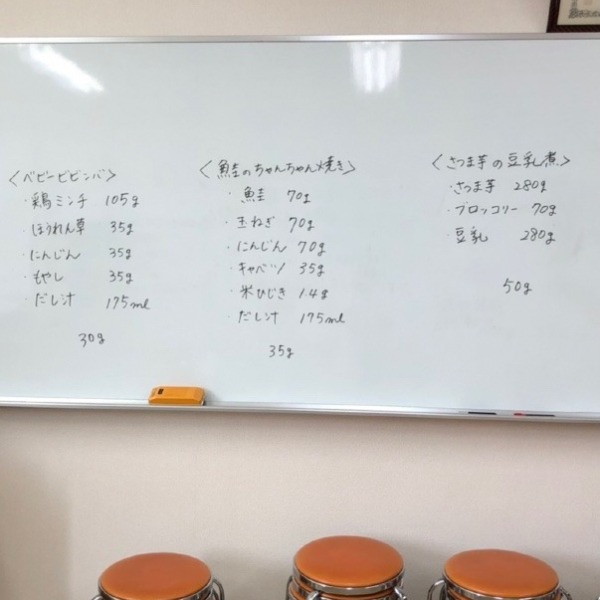 〈ベビービビンバ〉
・鶏ミンチ 105g
・ほうれん草 35g
・にんじん 35g
・もやし 35g
・だし汁 175ml
30g
〈鮭のちゃんちゃん焼き〉
・鮭 70g
・玉ねぎ 70g
・にんじん 70g
・キャベツ 35g
・米ひじき 1.4g
・だし汁 175ml
35g
〈さつま芋の豆乳煮〉
・さつま芋 280g
・ブロッコリー 70g
・豆乳 280g
50g